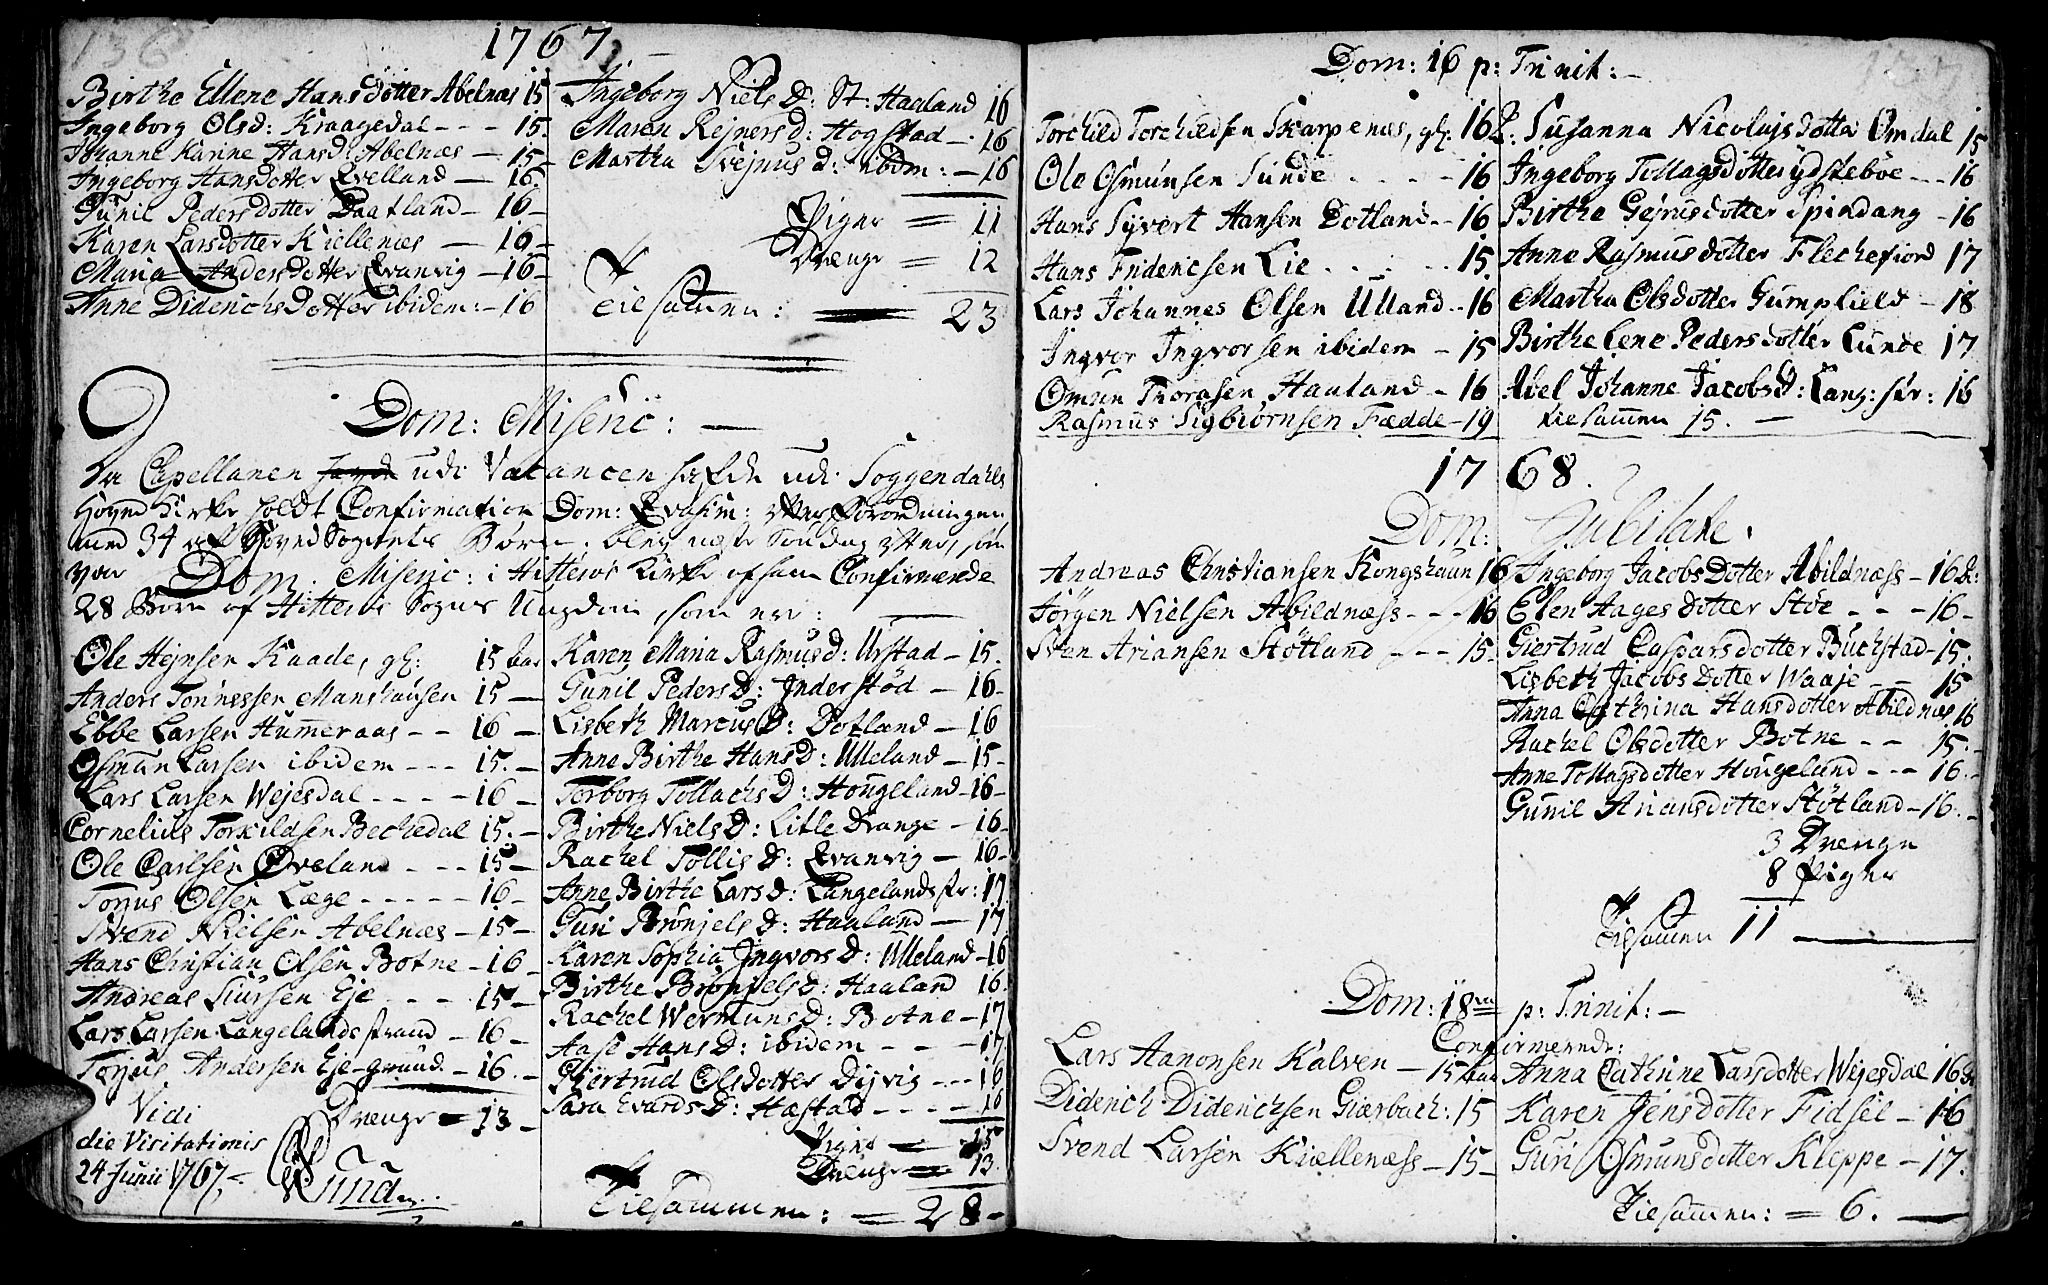 136
1767
Birthe Ellene Hansdotter Abelnæs 15
Ingeborg Olsd: Kraagedal - - - 15.
Johanne Karine Hansd: Abelnæs - 15 -
Ingeborg Hansdotter Qvelland - 16.
Gunil Pedersdotter Daatland - 16 -
Karen Larsdotter Kiellenæs - 16 -
Maria Andersdotter Evanvig - 16 -
Anne Diderichsdotter ibidem: - 16
Ingeborg Niels D: St: Haaland 16
Maren Rejners d: Hogstad - 16
Martha Svejnus D: ibdm: - 16
Piger = 11
Drenge = 12
Tilsamen: = 23
Dom: Miseric: -
Da Capellanen udi Vacancen hafde udi Soggendahls
Hoved Kirke holdt Confirmation Dom: Qvasim: efter Forordningen
med 34 af Hoved Sognets Børn, blev næste Søndag efter, som
var Dom. Miseric: i Hitterøe Kirke ofsaa Confirmerede
28 Børn af Hitterøe Sogns Ungdom, som er:
Ole Hejnsen Kaade, gl: 15 aar
Anders Tønnessen Manshausen 15 -
Ebbe Larsen Hummeraas - - 16 -
Osmun Larsen ibidem - - - 15. -
Lars Larsen Wejesdal - - - - 16 -
Cornelius Torkildsen Bechedal 15. -
Ole Carlsen Øveland - - - 15 -
Torjus Olsen Læge - - - - - 16 -
Svend Nielsen Abelnæs - 15 -
Hans Christian Olsen Botne - 16 -
Andreas Siursen Eje - - - 15 -
Lars Larsen Langelandsstrand - 16 -
Torjus Andersen Eje-grund - 16. -
Drenge = 13 -
Vidi
die Visitationis
24 Junii 1767. -
Karen Maria Rasmusd: Urstad - 15.
Gunil Peders D: Inderstød - 16 -
Lisbeth Marcus D: Dotland - 16
Anne Birthe Hans D: Ulleland - 15 -
Torborg Tollachs D: Hougeland - 16 -
Birthe Niels D: Litle Drange - 16 -
Rachel Tollis D: Evanvig - 16 -
Anne Birthe Lars D: Langelandsstr: 17.
Guri Brønjels D: Haaland - 17
Karen Sophia Ingvors D: Ulleland - 16
Birthe Brønjels D: Haaland 16.
Rachel Wermuns D: Botne - 17
Aase Hans D: ibidem - - - 17
Giertrud Olsdotter Dyvig - - - 16
Sara Evards D: Hæstad - - - - 16
Piger = 15
Drenge = 13.
Tilsammen: = 28 -
Dom: 16 p: Trinit: -
Torchild Torchildsen Skarpenæs, gl: 16
Ole Osmunsen Sunde - - - - - 16
Hans Syvert Hansen Dotland - - 16
Hans Fridericsen Lie - - - - 15.
Lars Johannes Olsen Ulland - - 16
Ingvor Ingvorsen ibidem - 15
Omun Thorasen Haaland - 16
Rasmus Sigbiørnsen Fædde - 19
Susanna Nicolajsdotter Omdal 15
Ingeborg Tollagsdotter Ydstebøe - - - 16
Birthe Gejrusdotter Spindang - 16
Anne Rasmusdotter Flechefiord 17
Martha Olsdotter Gumpfield - 18
Birthe Lene Pedersdotter Lunde 17
Abel Johanne Jacobs D: Lang: str: 16
tilsammen 15. -
1768.
Dom: Jubilate.
Andreas Christiansen Kongshaun 16
Jørgen Nielsen Abildnæss - - - 16
Sven Ariansen Støtland - - - 15 -
Ingeborg Jacobsdotter Abildnæss - 16
Elen Aagesdotter Støe - - - 16 -
Giertrud Caspersdotter Buchstad - 15.
Lisbeth Jacobsdotter Waaje - - 15
Anna Cathrina Hansdotter Abildnæs 16
Rachel Olsdotter Botne - - - 15. -
Anne Tollagsdotter Hougeland - - - 16. -
Gunil Ariansdotter Støtland - 16. -
3 Drenge
8 Piger
Tilsamen 11
Dom: 18 p: Trinit: -
Confirmerede:
Lars Aanonsen Kalven - 15 aar
Diderich Diderichsen Giærbach: 15
Svend Larsen Kiællenæss - 15 -
Anna Cathrine Larsdotter Wejesdal 16
Karen Jensdotter Fidsel - 16
Guri Osmunsdotter Kleppe - 17.
Tilsammen: = 6. -